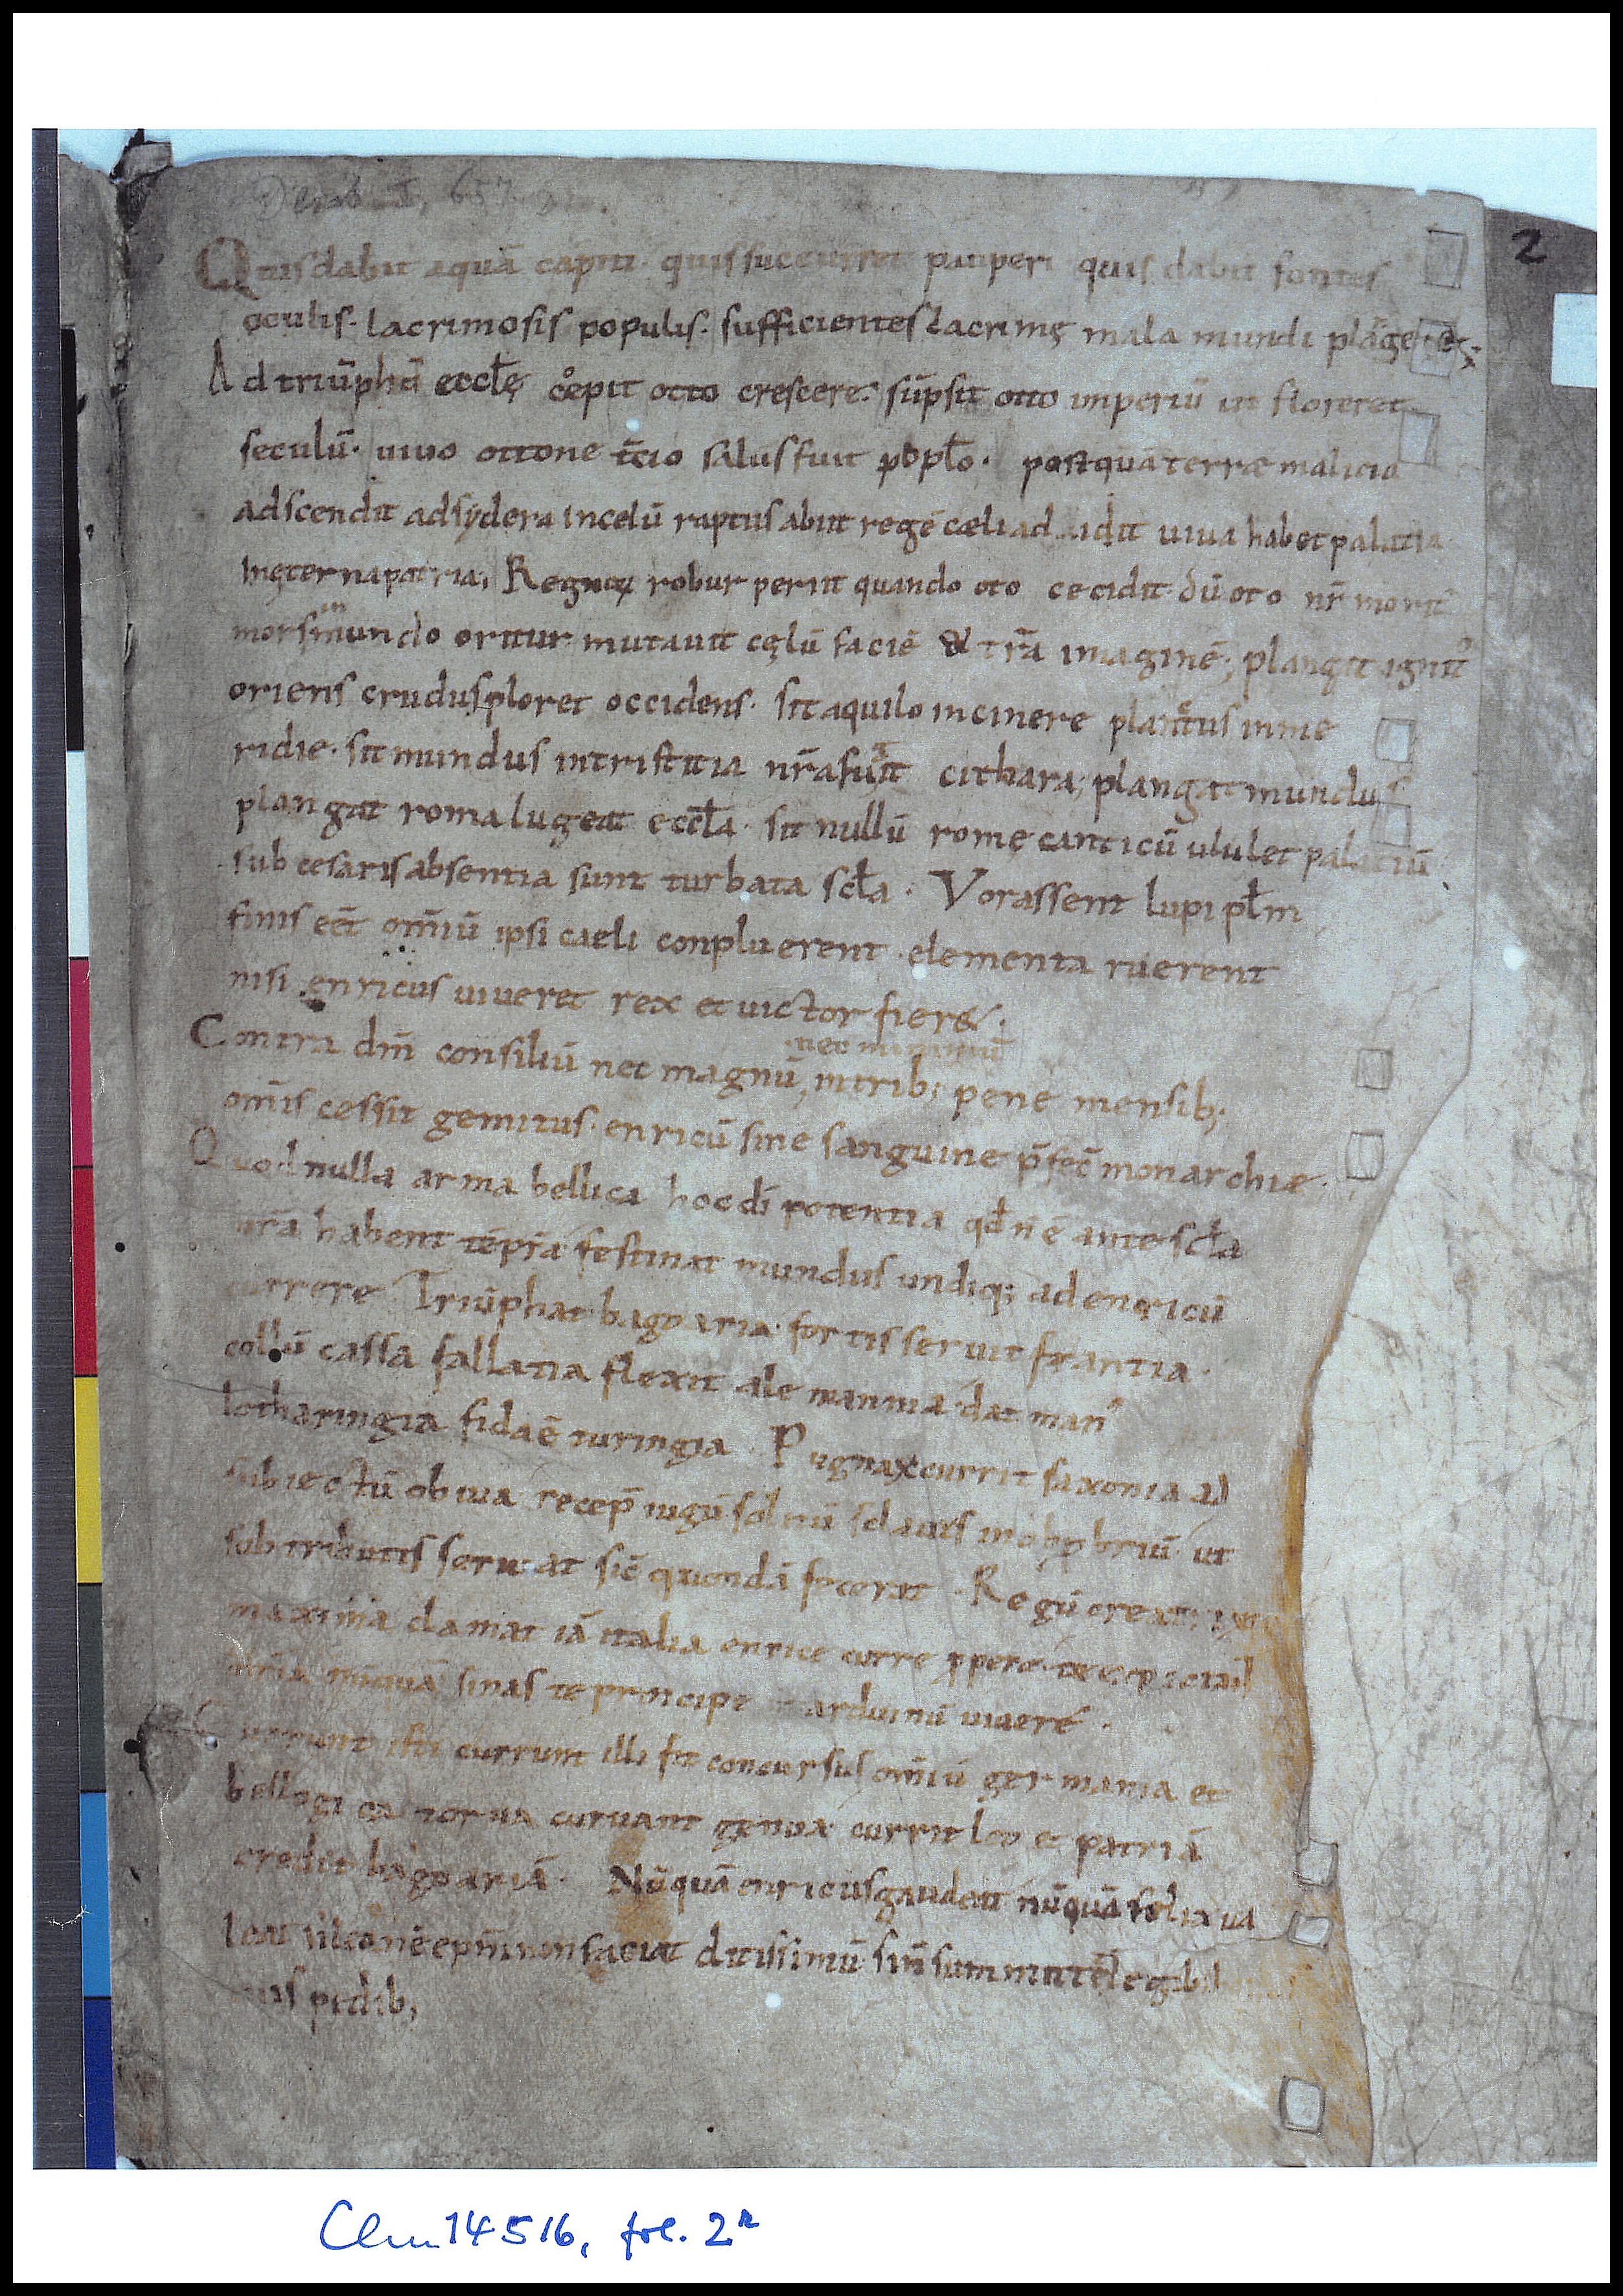 2
Quis dabit aquā capiti· quis succurret pauperi quis dabit fontes
oculis· lacrimosis populis· sufficientes lacrimę mala mundi plangere;
Ad triūphū eccłę cępit otto crescere· sūpsit otto imperiū ut floreret
seculū· uiuo ottone t̄cio salus fuit popło· postquā terrae malicia
adscendit ad sydera in celū raptus abiit regē caeli adiidit uiua habet palatia
in ęterna patria; Regnoꝝ robur periit quando oto cecidit dū oto nr̄ morit
mors in mundo oritur mutauit cęlū faciē & tr̄a imaginē; plangat ignit᷒
oriens crudus ploret occidens· sit aquilo in cinere planctus in me
ridie· sit mundus in tristitia nr̄a fuat cithara; plangat mundus
plangat roma lugeat eccła· sit nullū romę canticū ululet palatiū
sub cesaris absentia sunt turbata scła· Vorassent lupi płm
finis eēt om̄iū ipsi caeli conpluerent elementa ruerent
nisi enricus uiueret rex et uictor fier&·
nec minimū
Contra dm̄ consiliū nec magnū, in trib; pene mensib;
om̄is cessit gemitus· enricū sine sanguine p̄fec̄ monarchiae·
Quod nulla arma bellica hoc di potentia qđ nē ante scła
nr̄a habent tēpr̄a festinat mundus undiq; ad enricū
currere Triūphat bagoaria· fortis seruit frantia·
collū cassa fallatia flexit alemannia dat man᷒
lotharingia fida ē turingia Pugnax currit saxonia ad
subiectū obuia recep̄ iugū solitū sclauis in obpbriū ut
sub tributis seruiat sic̄ quondā fecerat· Regū
maxima clamat iā italia enrice curre ꝓpere te
nūquā sinas te principe arduinū uiuere·
Currunt isti currunt illi fit concursus om̄iū germania et
bellagica torua curuant genua currit leo et patriā
credit bagoariā· Nūquā enricus gaudeat nūquā felix ua
leat nisi eepm̄ non faciat ditissimū
pedib;
Clm 14516, fol. 2r